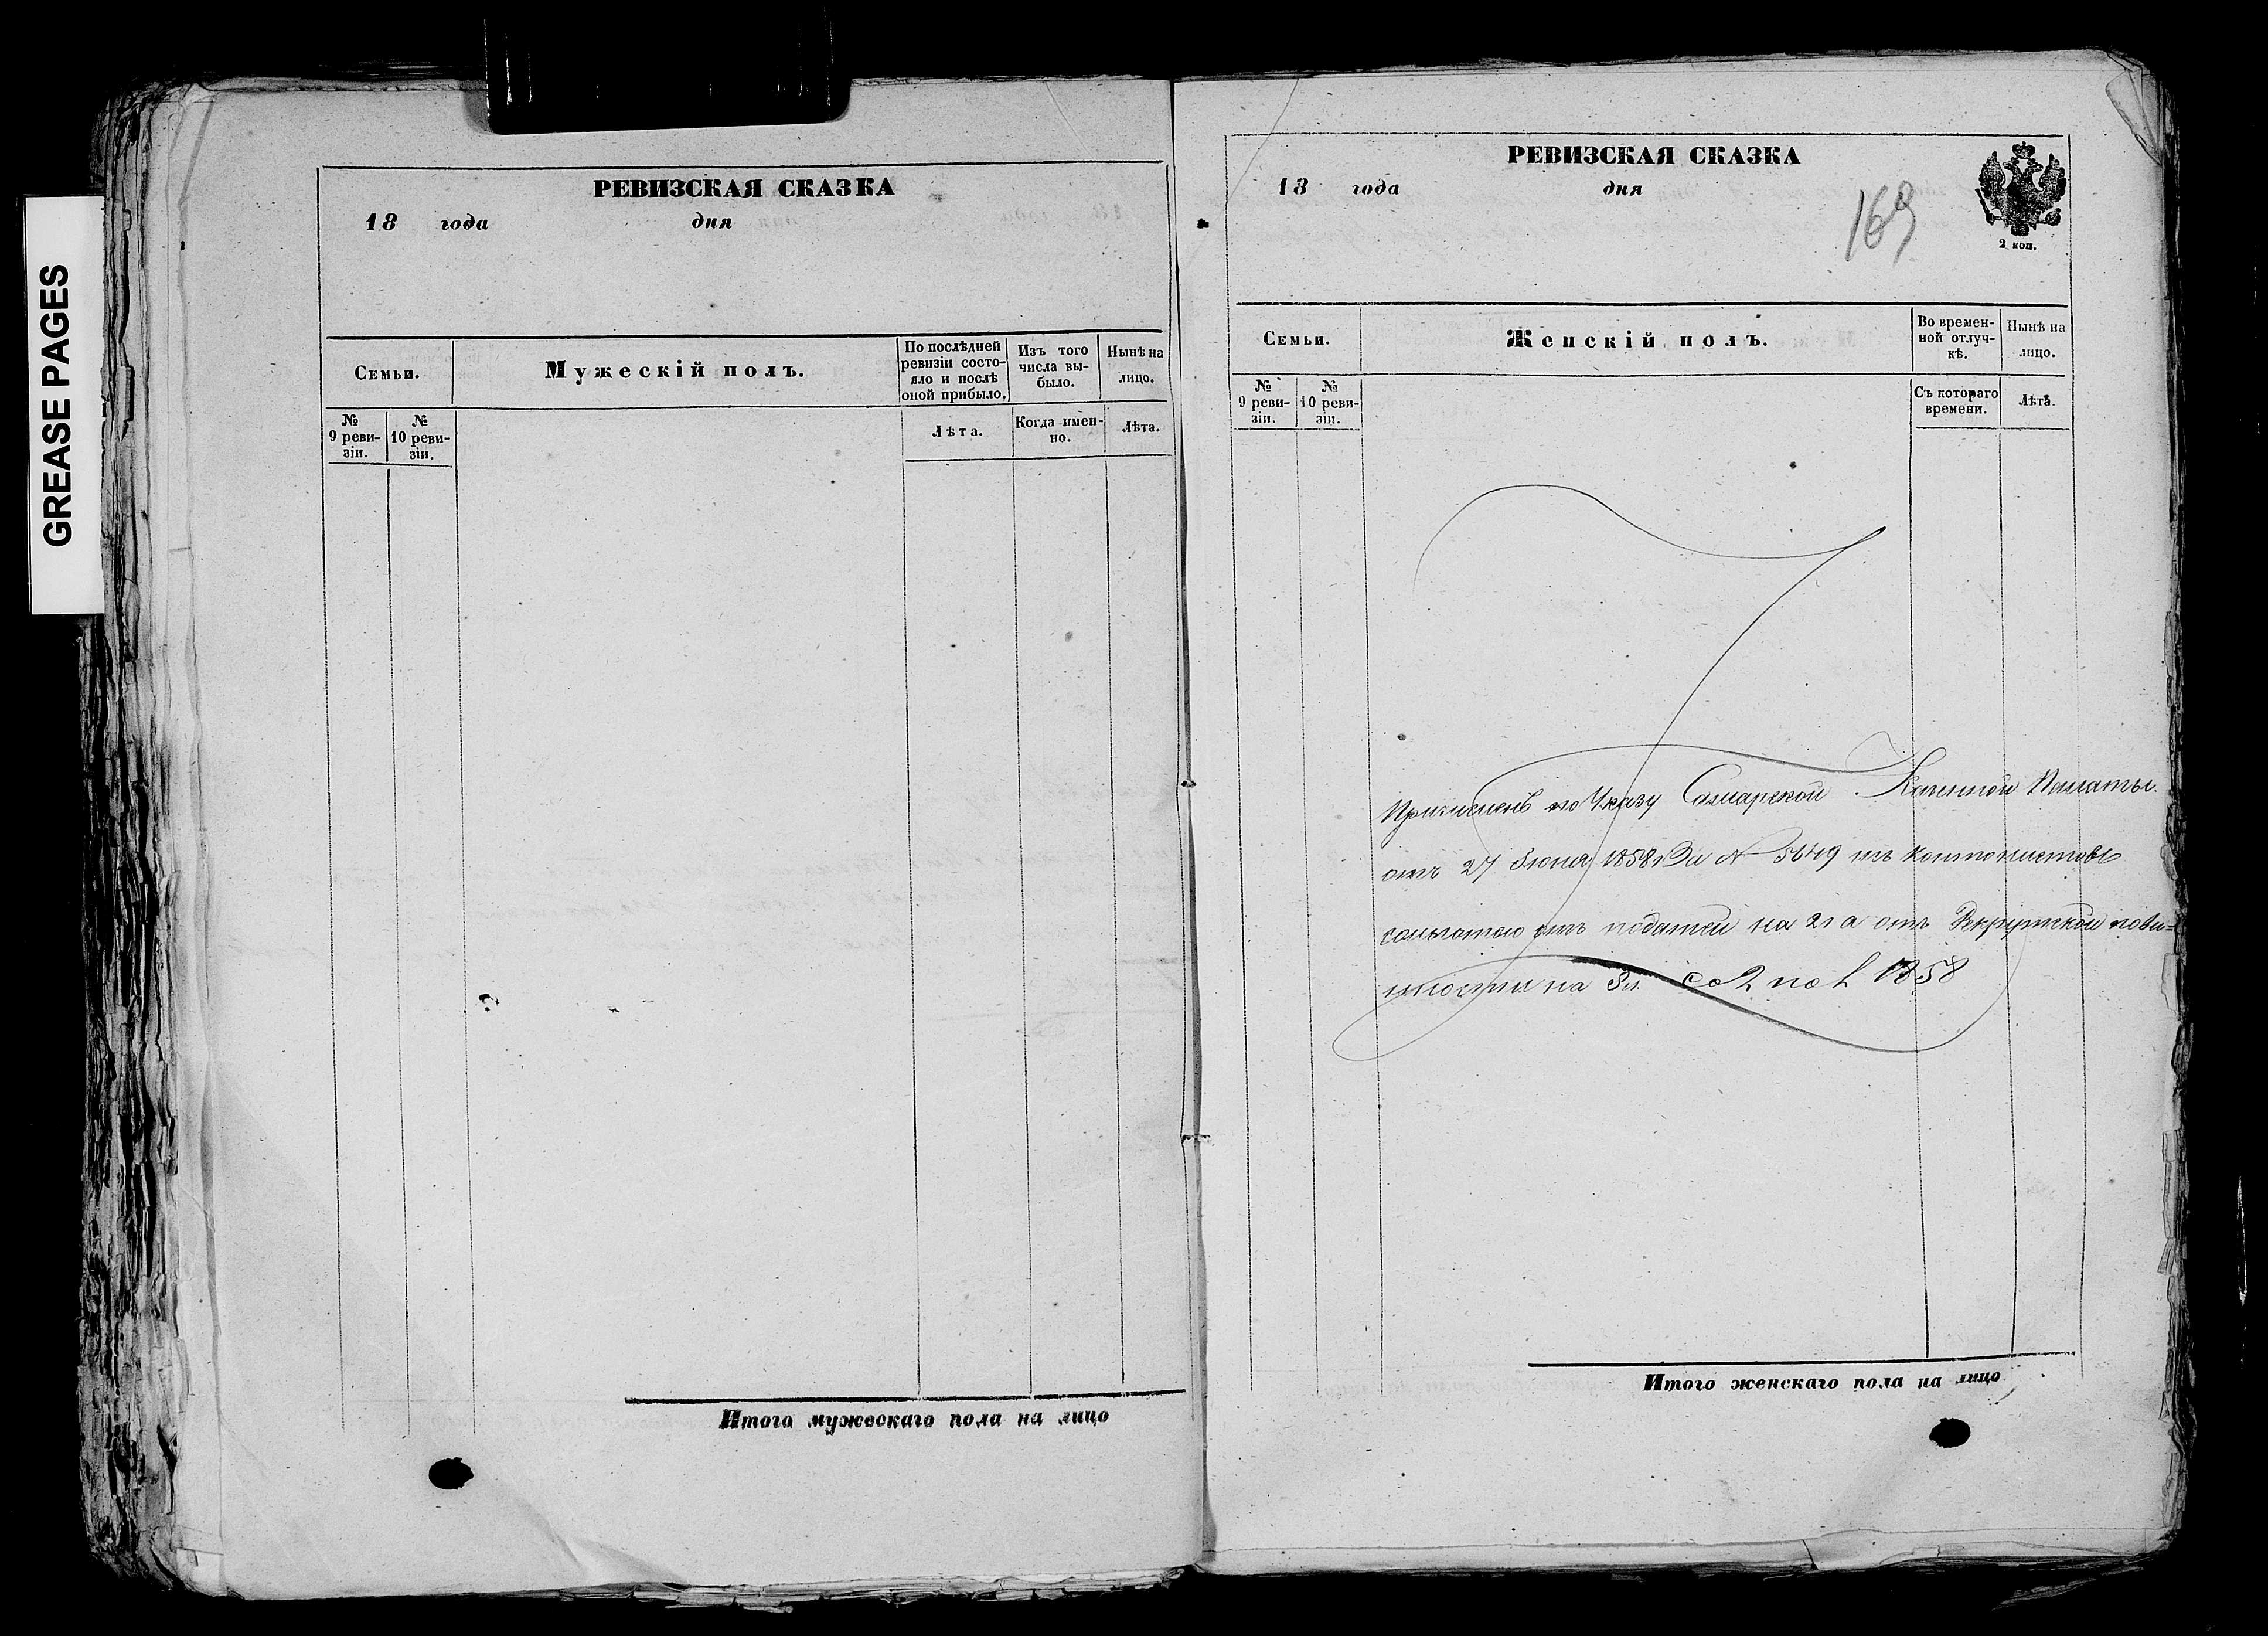 GREASE PAGES
РЕВИЗСКАЯ СКАЗКА
18 года дня
Семьи.
Мужескій полъ.
По послѣдней ревизіи состояло и послѣ оной прибыло.
Изъ того числа выбыло.
Нынѣ на лицо.
№ 9 ревизіи.
№ 10 ревизіи.
Лѣта.
Когда именно.
Лѣта.
Итого мужескаго пола на лицо
РЕВИЗСКАЯ СКАЗКА
18 года дня
169
2 коп.
Семьи.
Женскій полъ.
Во временной отлучкѣ.
Нынѣ на лицо.
№ 9 ревизіи.
№ 10 ревизіи.
Съ котораго времени.
Лѣта.
Причисленъ по Указу Самарской Казенной Палаты
отъ 27 Іюня 1858 За № 5649 изъ кантонистовъ
сольготою отъ податей на 2г а отъ Рекрутской пови=
нности на 3г. со 2 по 1858
Итого женскаго пола на лицо